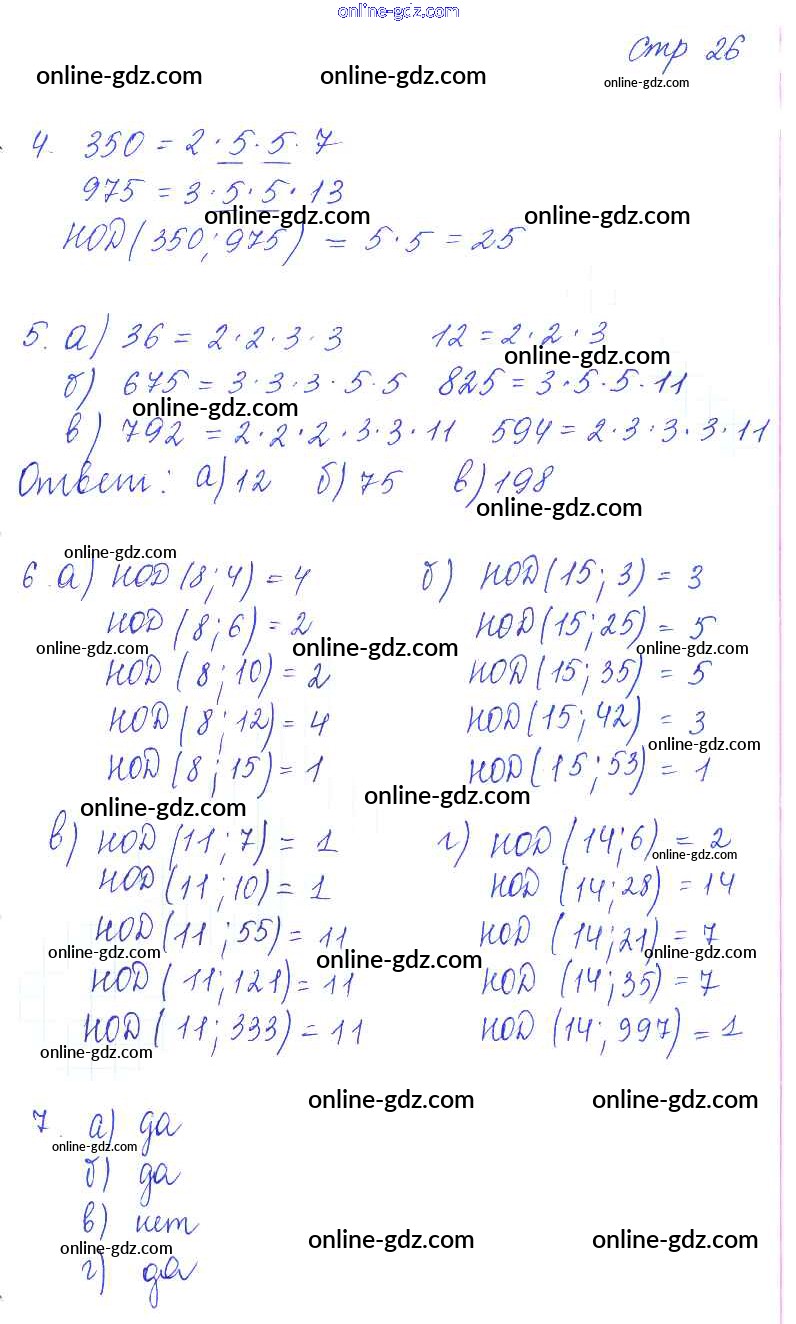 online-gdz.com
стр 26
online-gdz.com online-gdz.com online-gdz.com
4. 350 = 2·5·5·7
975 = 3·5·5·13
online-gdz.com online-gdz.com
НОД(350;975) = 5·5 = 25
5. а) 36 = 2·2·3·3 12 = 2·2·3
online-gdz.com
б) 675 = 3·3·3·5·5 825 = 3·5·5·11
online-gdz.com
в) 792 = 2·2·2·3·3·11 594 = 2·3·3·3·11
Ответ: а) 12 б) 75 в) 198
online-gdz.com
online-gdz.com
6 а) НОД(8;4) = 4 б) НОД(15;3) = 3
НОД(8;6) = 2 НОД(15;25) = 5
online-gdz.com online-gdz.com online-gdz.com
НОД(8;10) = 2 НОД(15;35) = 5
НОД(8;12) = 4 НОД(15;42) = 3
online-gdz.com
НОД(8;15) = 1 НОД(15;53) = 1
online-gdz.com online-gdz.com
в) НОД(11;7) = 1 г) НОД(14;6) = 2
online-gdz.com
НОД(11;10) = 1 НОД(14;28) = 14
НОД(11;55) = 11 НОД(14;21) = 7
online-gdz.com online-gdz.com online-gdz.com
НОД(11;121) = 11 НОД(14;35) = 7
НОД(11;333) = 11 НОД(14;997) = 1
online-gdz.com
online-gdz.com online-gdz.com
7. а) да
online-gdz.com
б) да
в) нет
online-gdz.com online-gdz.com online-gdz.com
г) да